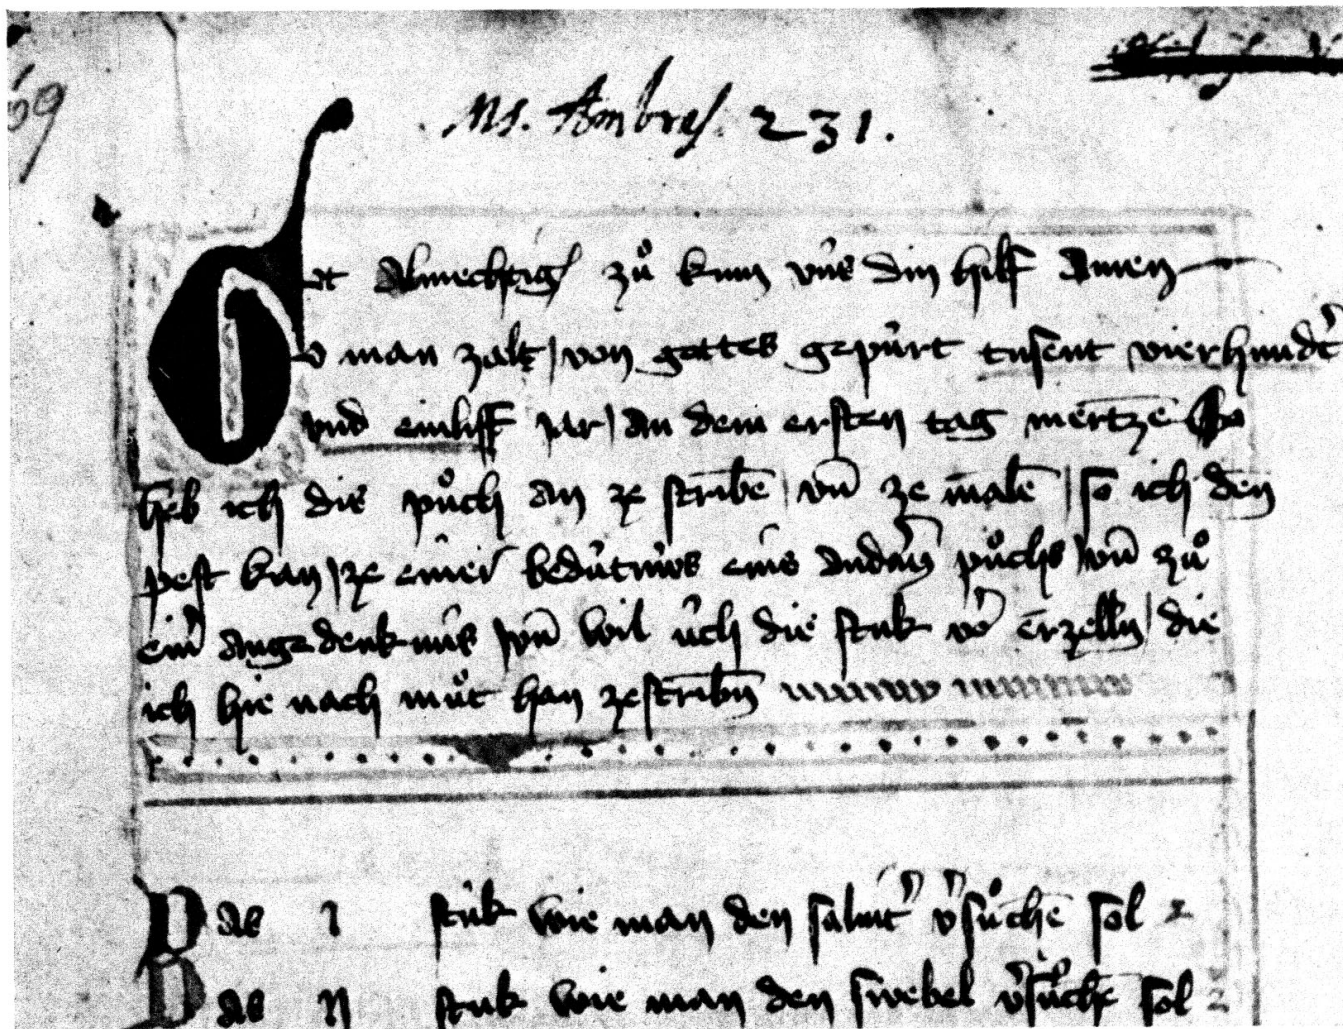 69
Ms. Ambras. 231.
Got almechtig zů kum vns din hilf Amen
Do man zalt / von gottes gepůrt tusent vierhundt̉
vnd einliff jar / an dem ersten tag mertzē
heb ich dis půch an ze schribē / vn̄ ze malē / so ich den
pest kan / ze einer bedütnüs eins andern půchs / vn̄ zů
ein̉ angedenknüs / vn̄ wil üch die stuk vō erzelln / die
ich hie nach můt han zeschribn̄
Das I stuk wie man den saluit̉ v̉sůchē sol
Das II stuk wie man den swebel v̉sůchē sol